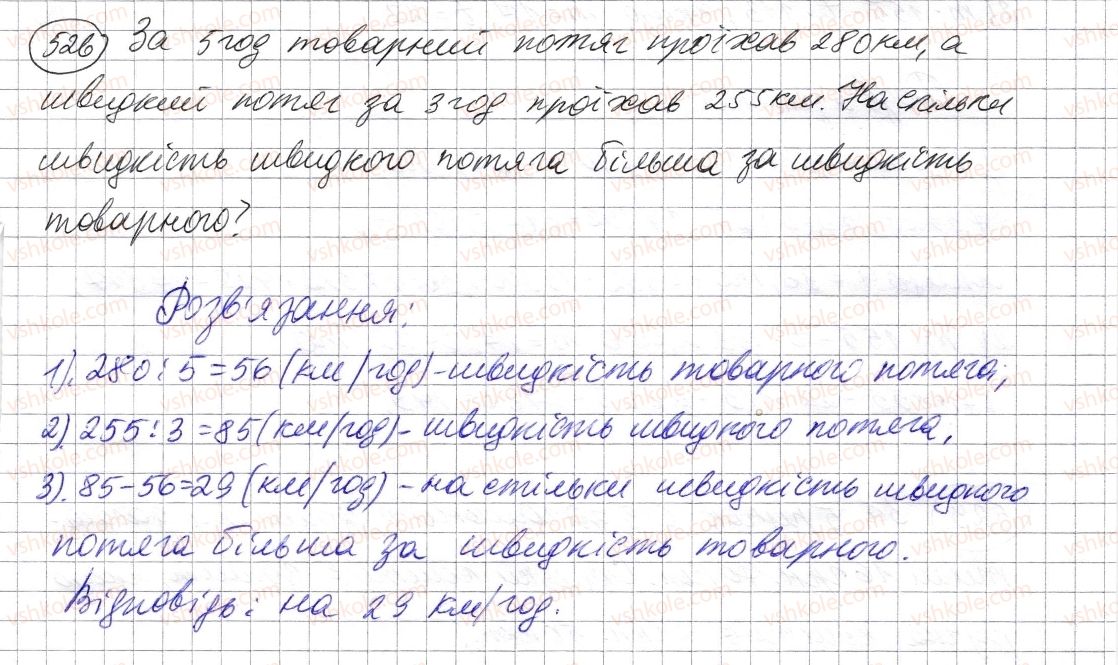 526 За 5 год товарний потяг проїхав 280 км, а
швидкий потяг за 3 год проїхав 255 км. На скільки
швидкість швидкого потяга більша за швидкість
товарного?
Розв'язання:
1). 280 : 5 = 56 (км/год) - швидкість товарного потяга;
2). 255 : 3 = 85 (км/год) - швидкість швидкого потяга,
3). 85 - 56 = 29 (км/год) - на стільки швидкість швидкого
потяга більша за швидкість товарного.
Відповідь: на 29 км/год.